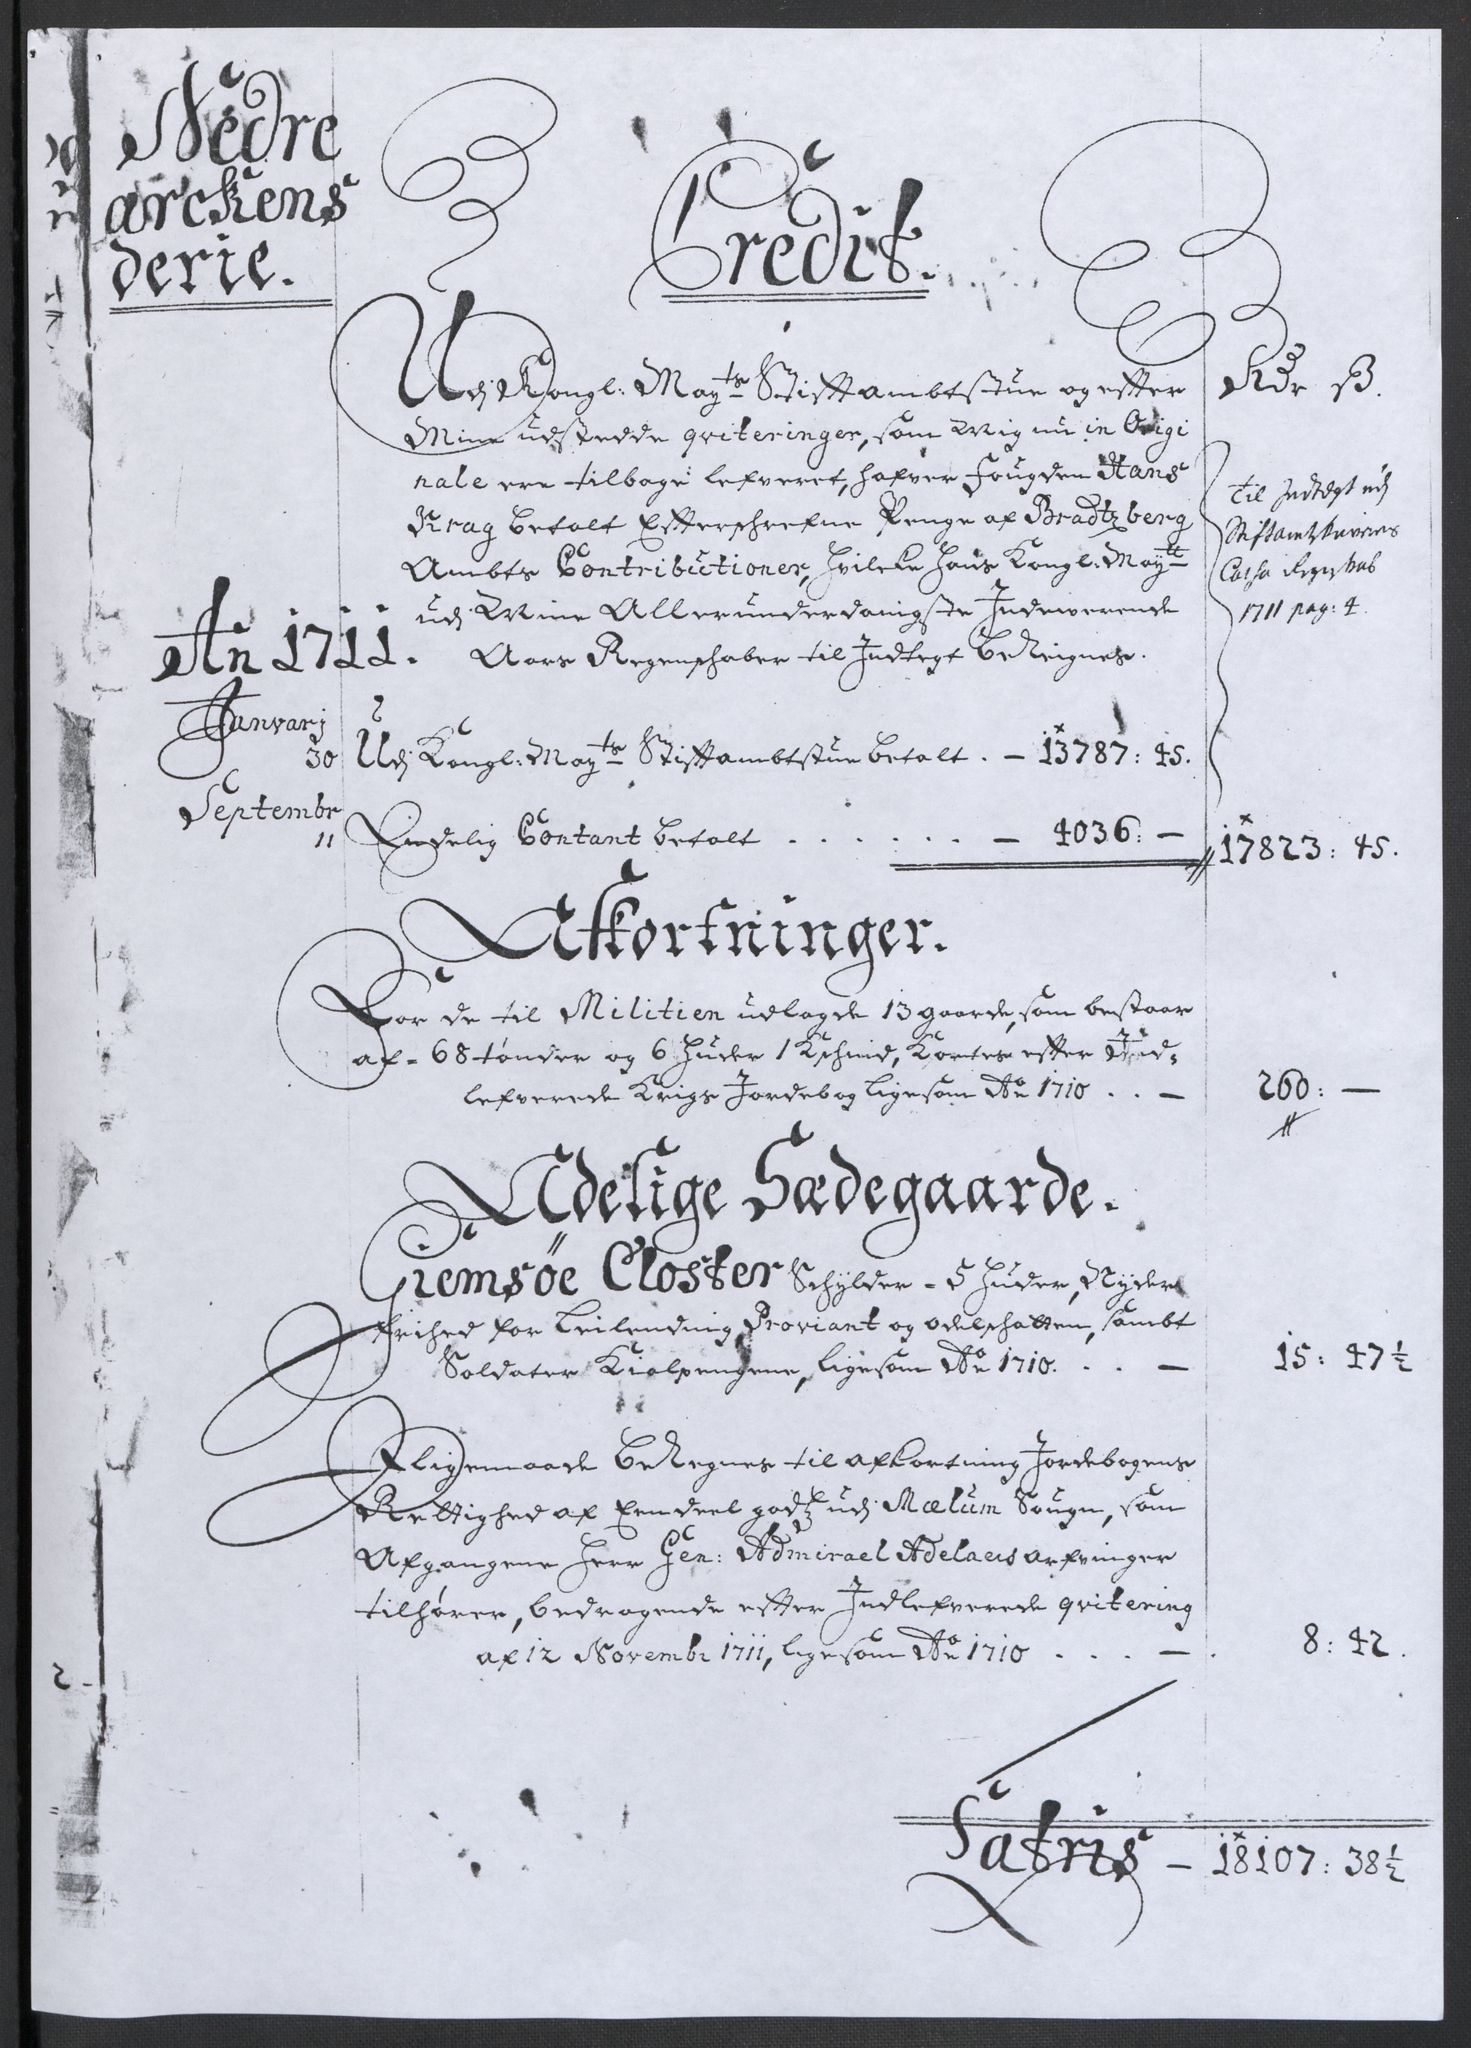 Nedre
arckens
derie.
Credit.
Udj Kongl: Mayts Stifftambtstue og effter
Rdr ß.
Mine udstedde qviteringer, som Mig nu in Origi
nale ere tilbage lefveret, hafver Fougden Hans
Krag betalt Efterschrefne Penge af Bradtzberg
Ambts Contributioner, hvilcke Hans Kongl: Maytt
udj Mine Allerunderdanigste Indeværende
Aars Regenschaber til Indtegt beReignes.
til Indtegt udj
Stiftamtskriverens
Cassa Regnskab
1711 pag: 4.
An 1711.
Januarj
30 Udj Kongl: Mayts Stifftambtstue betalt . — 13787: 45.
Septembr
11 Endelig Contant betalt . . . . . . — 4036: — 17823: 45.
Afkortninger.
For de til Militien udlagde 13 gaarde, som bestaar
af - 68 tønder og 6 Huder 1 Kschind, Kortes effter Ind-
lefverede Krigs Jordebog ligesom Ao 1710 . . — 260: —
Adelige Sædegaarde.
Giemsøe Closter Schylder - 5 Huder, Nyder
frihed for Leilending Proviant og odelschatten, sambt
Soldater Kiolpengene, ligesom Ao 1710. . . — 15: 47½
I ligemaade beRegnes til afkortning Jordebogens
Rettighed af Eendeel godtz udj Mælum Sougn, som
Afgangene Herr Gen: Admirael Adelaers arfvinger
tilhører, bedragende effter Indlefverede qvitering
af 12 Novembr 1711, ligesom Ao 1710 . . . — . 8: 42.
Latris — 18107: 38½